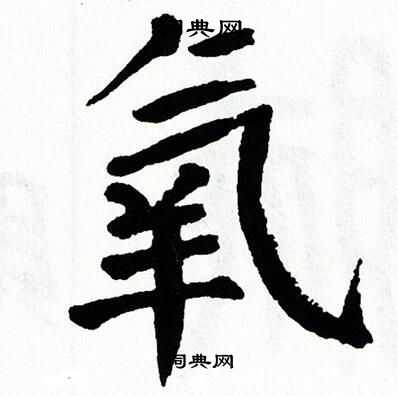 词典网
氧
词典网